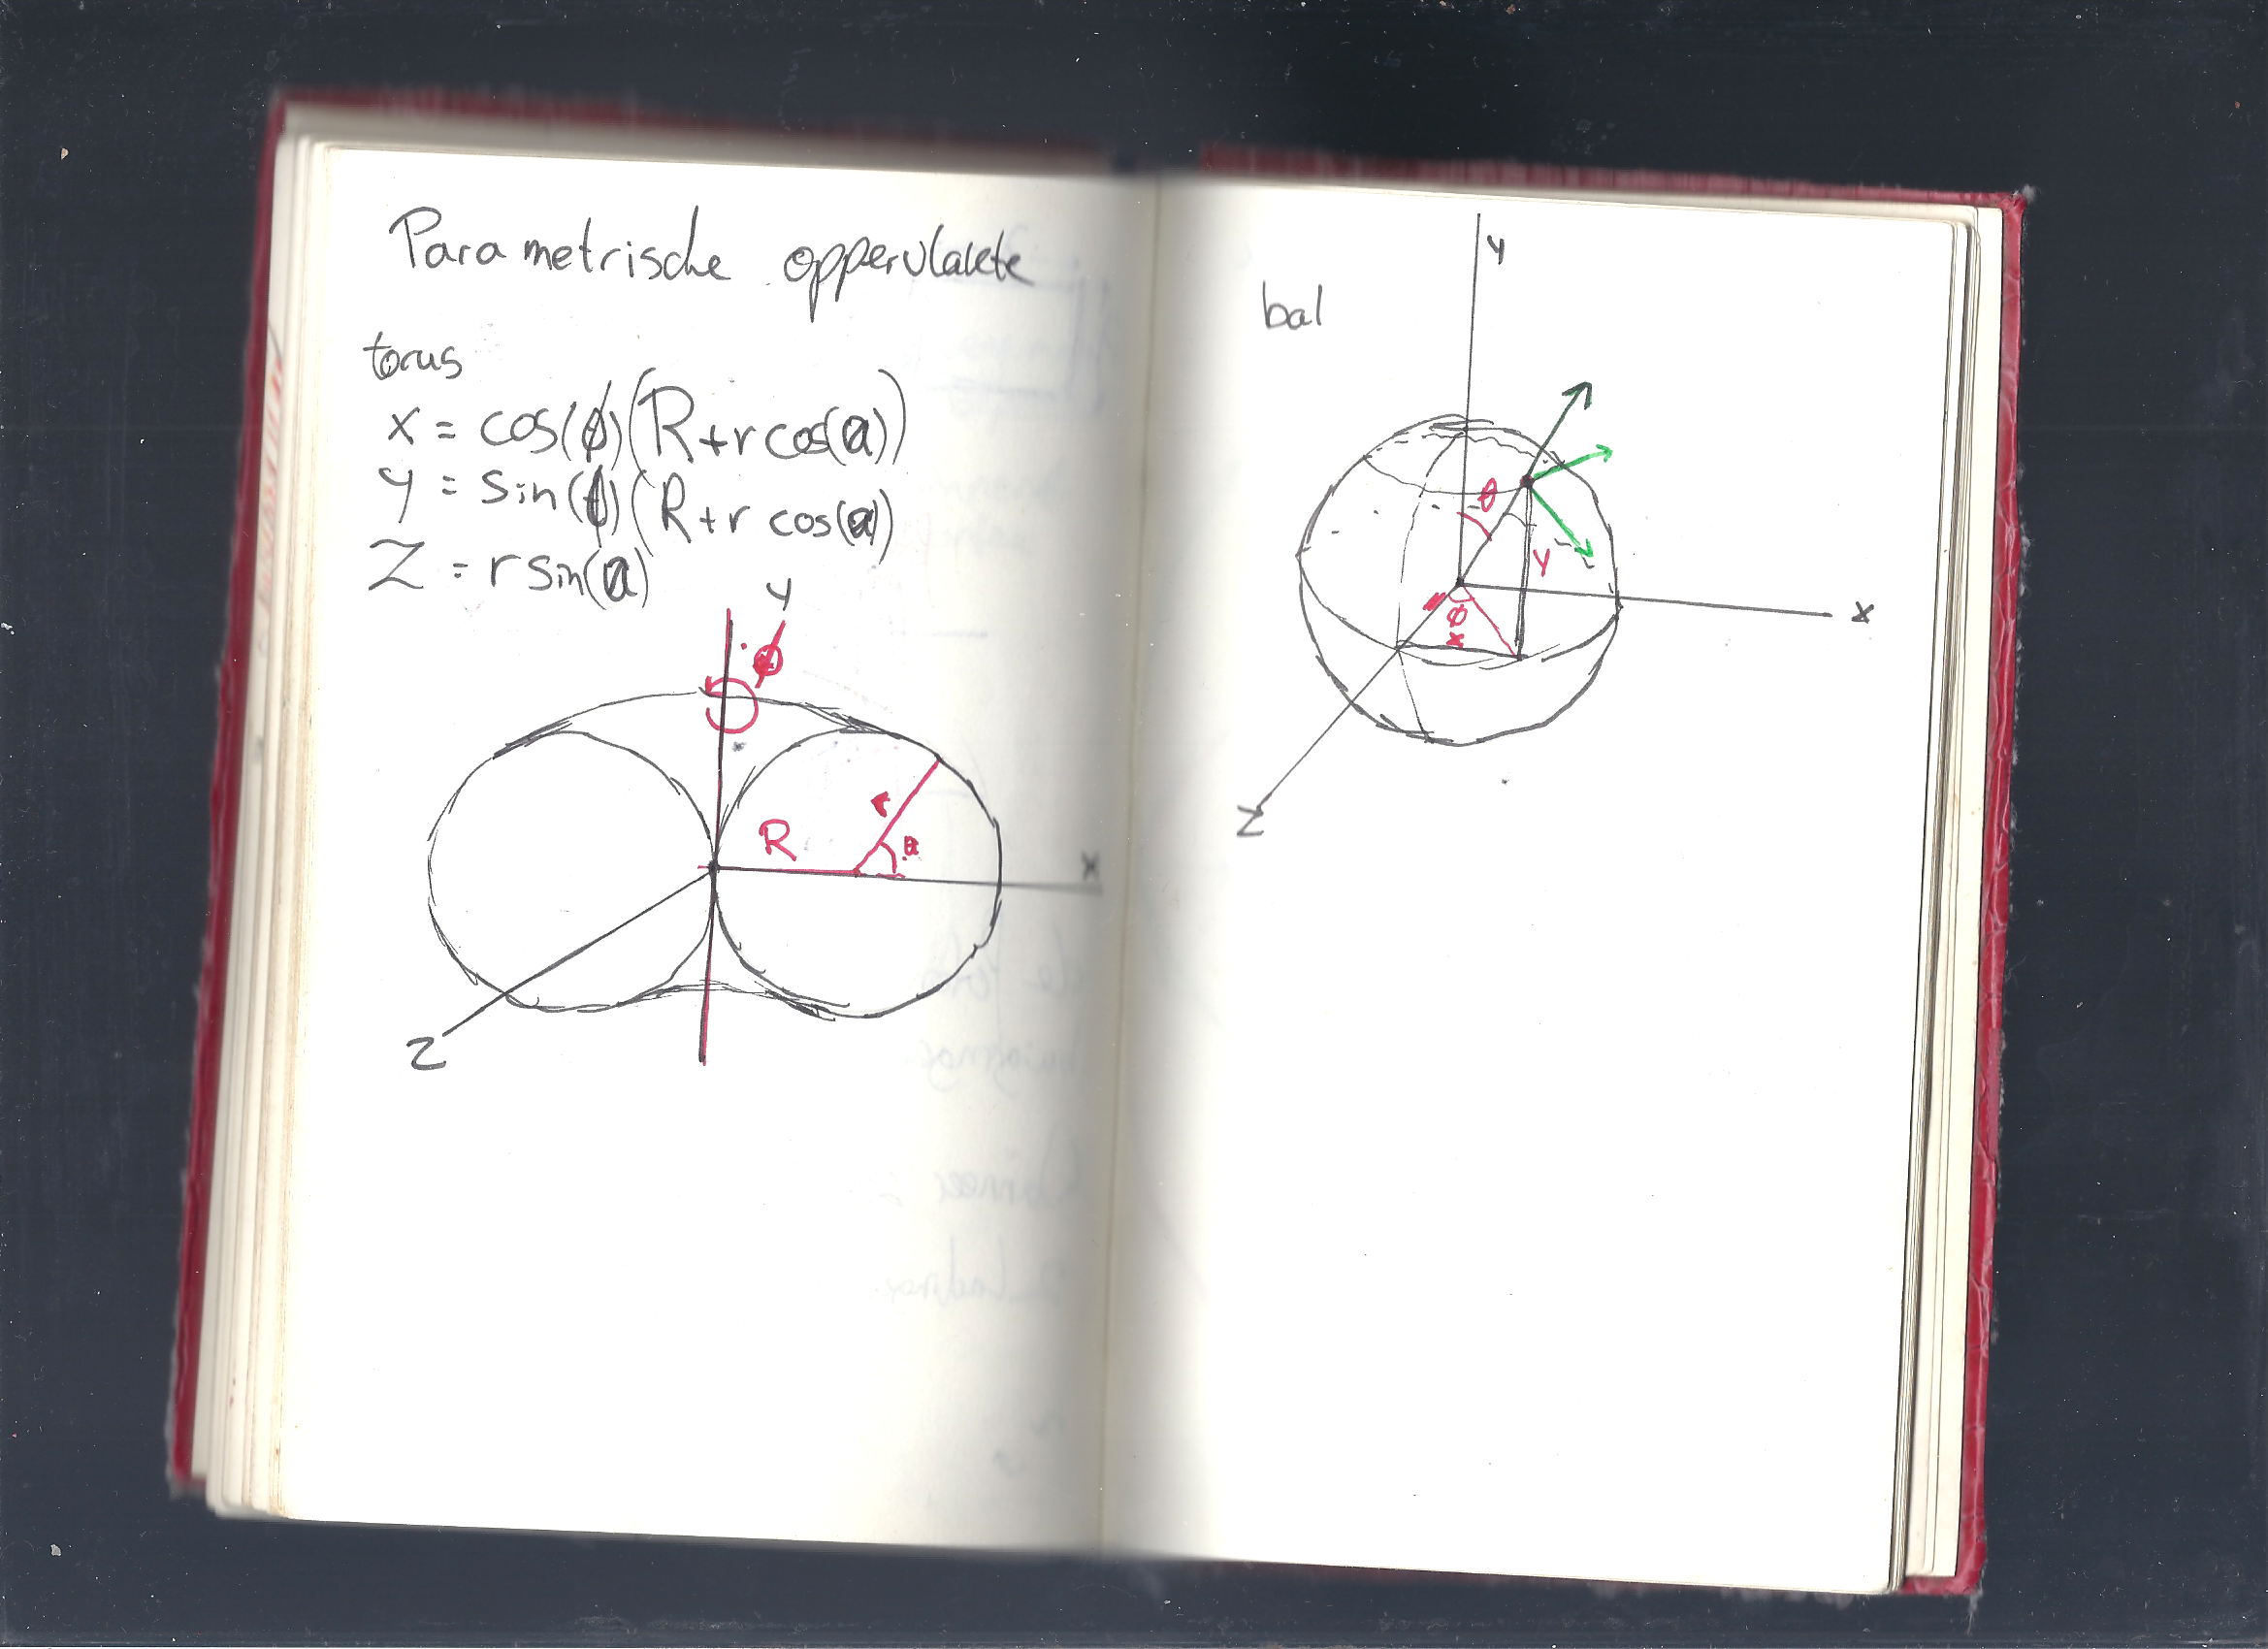 Parametrische oppervlakte
torus
x = cos(ϕ)(R+r cos(a))
y = sin(ϕ)(R+r cos(a))
Z = r sin(a)
y
ϕ
r
R
a
x
z
bal
y
θ
y
x
ϕ
x
z